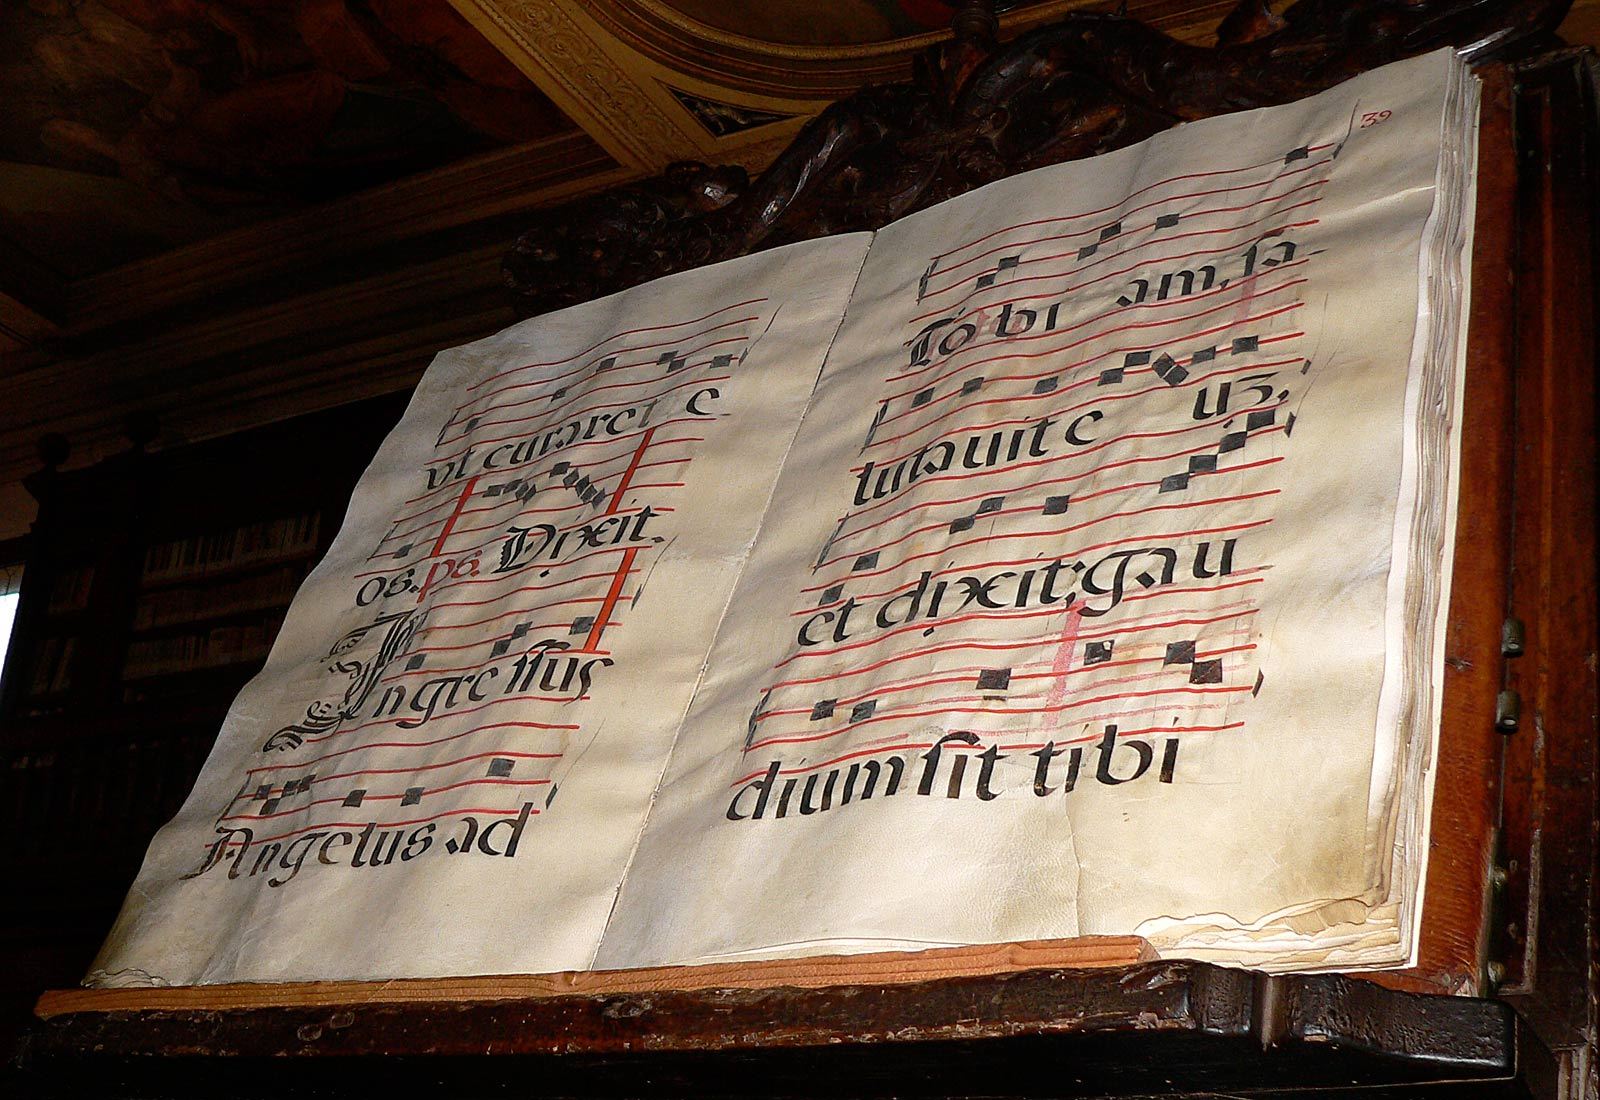 vt curaret e
os. ps. Dixit.
Ingressus
Angelus ad
39
Tobi am, sa
lutauit e uʒ,
et dixit; gau
dium sit tibi